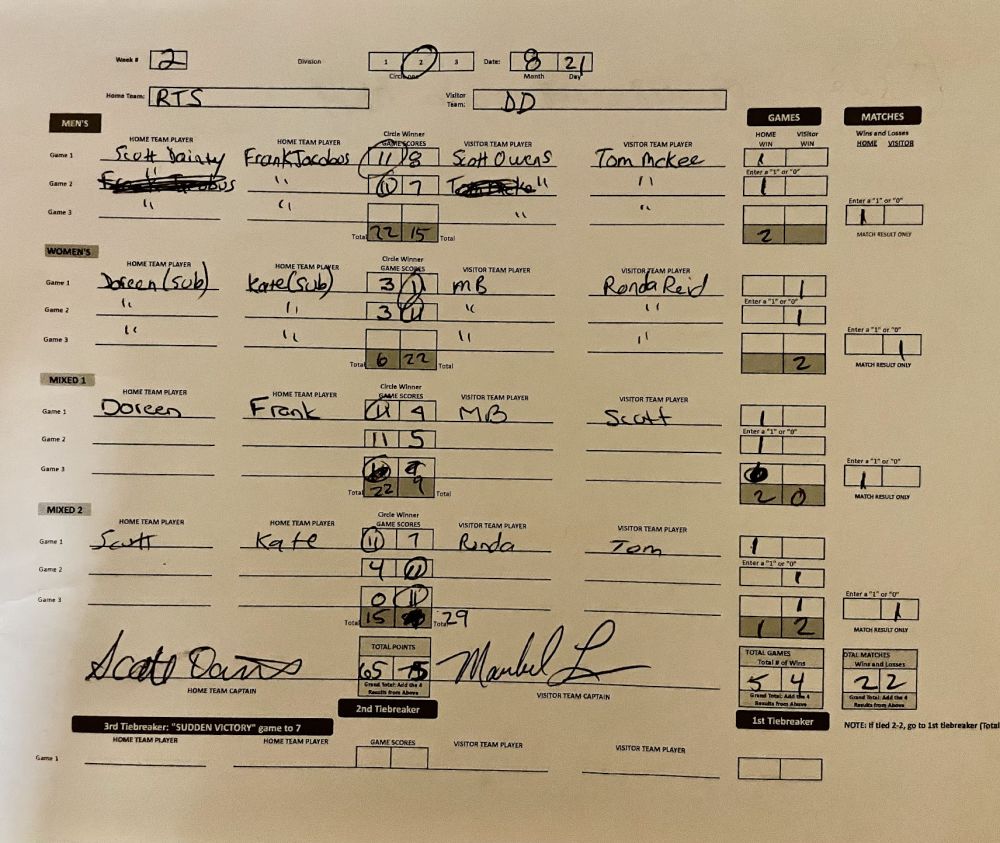 Week # 2 Division 1 2 3 Date: 8 21
Circle one Month Day
Home Team: RTS Visitor Team: DD
MEN'S GAMES MATCHES
HOME TEAM PLAYER HOME TEAM PLAYER Circle Winner GAME SCORES VISITOR TEAM PLAYER VISITOR TEAM PLAYER HOME WIN Visitor WIN Wins and Losses HOME VISITOR
Game 1 Scott Dainty Frank Jacobus 11 8 Scott Owens Tom McKee 1
Enter a "1" or "0"
Game 2 " " 11 7 " " 1
Enter a "1" or "0"
Game 3 " " " " 1
Total 22 15 Total 2 MATCH RESULT ONLY
WOMEN'S
HOME TEAM PLAYER HOME TEAM PLAYER Circle Winner GAME SCORES VISITOR TEAM PLAYER VISITOR TEAM PLAYER
Game 1 Doreen (sub) Kate (sub) 3 11 MB Ronda Reid 1
Enter a "1" or "0"
Game 2 " " 3 11 " " 1
Enter a "1" or "0"
Game 3 " " " " 1
Total 6 22 Total 2 MATCH RESULT ONLY
MIXED 1
HOME TEAM PLAYER HOME TEAM PLAYER Circle Winner GAME SCORES VISITOR TEAM PLAYER VISITOR TEAM PLAYER
Game 1 Doreen Frank 11 4 MB Scott 1
Enter a "1" or "0"
Game 2 11 5 1
Enter a "1" or "0"
Game 3 1
Total 22 9 Total 2 0 MATCH RESULT ONLY
MIXED 2
HOME TEAM PLAYER HOME TEAM PLAYER Circle Winner GAME SCORES VISITOR TEAM PLAYER VISITOR TEAM PLAYER
Game 1 Scott Kate 11 7 Ronda Tom 1
Enter a "1" or "0"
Game 2 4 11 1
Enter a "1" or "0"
Game 3 0 11 1 1
Total 15 Total 29 1 2 MATCH RESULT ONLY
TOTAL POINTS TOTAL GAMES Total # of Wins TOTAL MATCHES Wins and Losses
65 75 5 4 2 2
HOME TEAM CAPTAIN Grand Total: Add the 4 Results from Above VISITOR TEAM CAPTAIN Grand Total: Add the 4 Results from Above Grand Total: Add the 4 Results from Above
2nd Tiebreaker 1st Tiebreaker
3rd Tiebreaker: "SUDDEN VICTORY" game to 7 NOTE: If tied 2-2, go to 1st tiebreaker (Total
HOME TEAM PLAYER HOME TEAM PLAYER GAME SCORES VISITOR TEAM PLAYER VISITOR TEAM PLAYER
Game 1